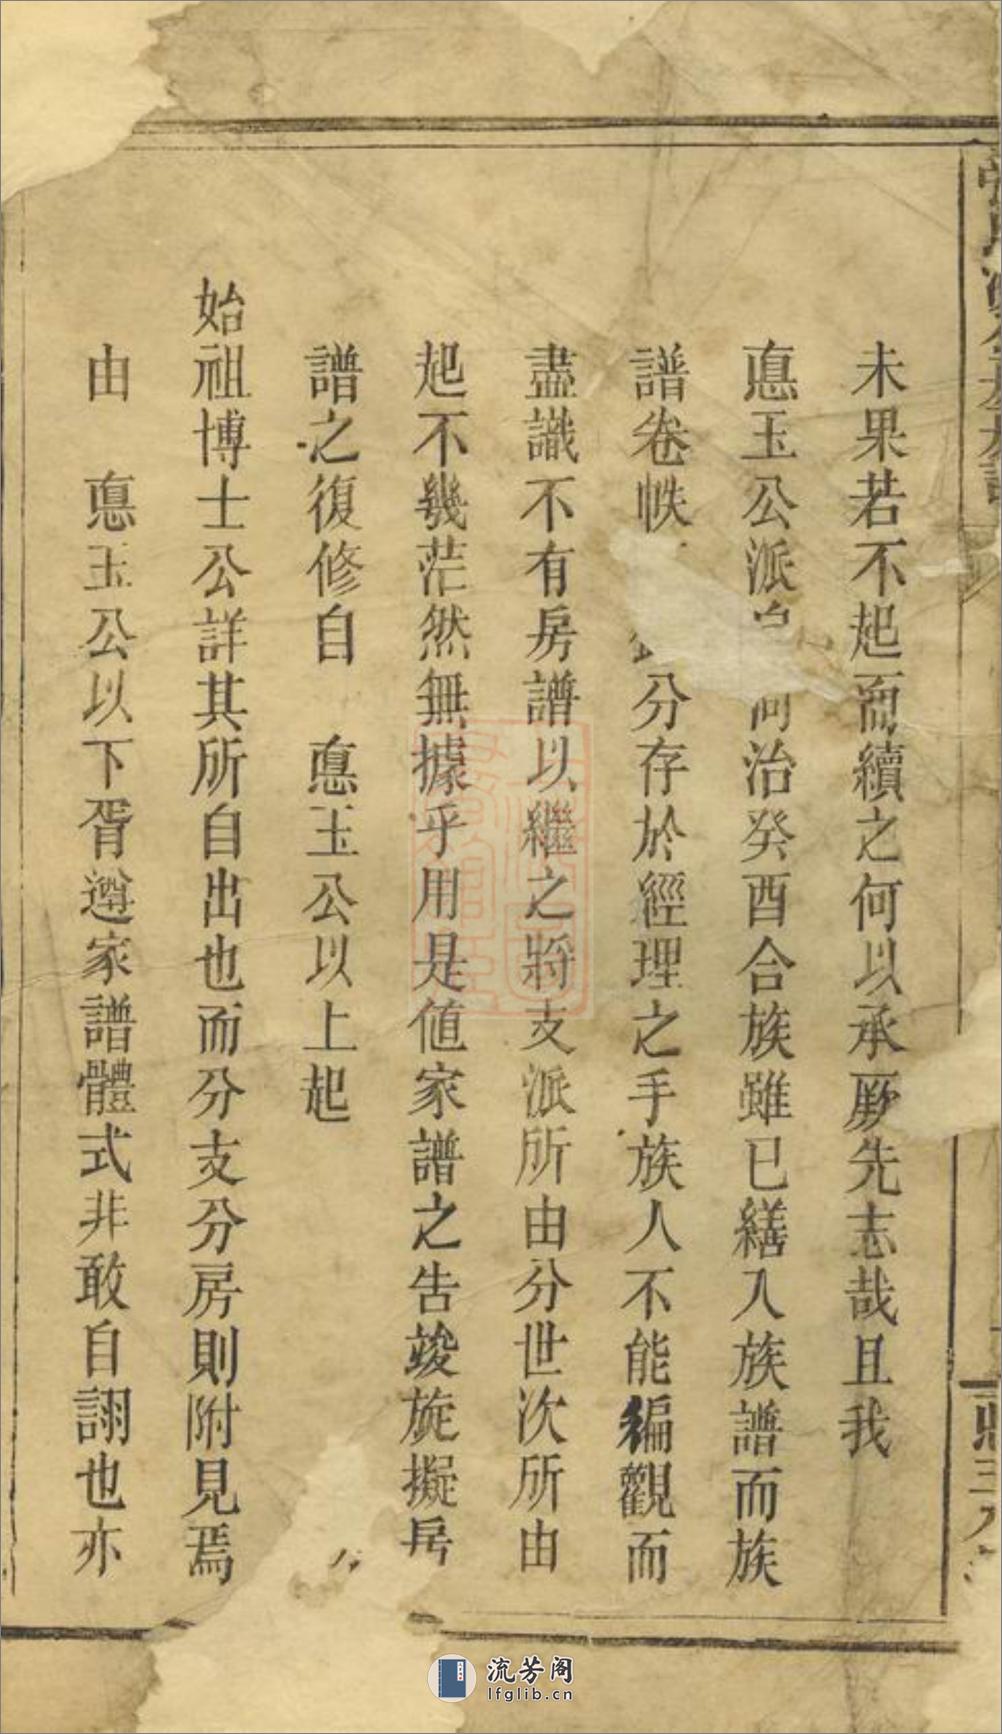 未果若不起而續之何以承厥先志哉且我
惪玉公派 治癸酉合族雖已繕入族譜而族
譜卷帙 分存於經理之手族人不能徧觀而
盡識不有房譜以繼之將支派所由分世次所由
起不幾茫然無據乎用是值家譜之告竣旋擬房
譜之復修自 惪玉公以上起
始祖博士公詳其所自出也而分支分房則附見焉
由 惪玉公以下胥遵家譜體式非敢自詡也亦
流芳阁
lfglib.cn